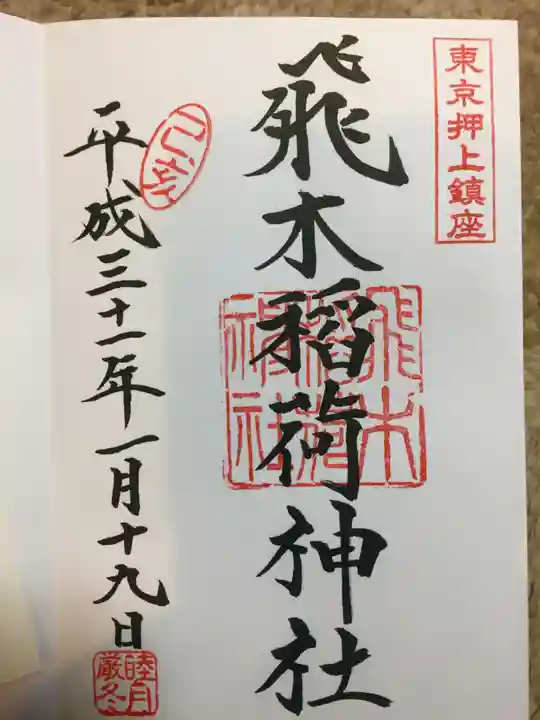 東京押上鎮座
飛木稲荷神社
飛木稲荷神社
平成三十一年一月十九日
睦月厳冬